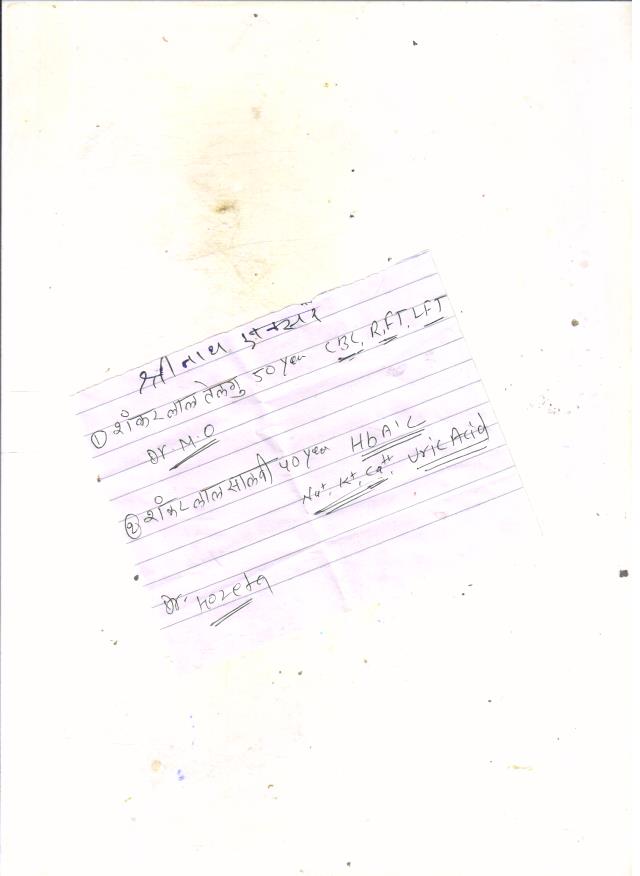 श्री नाथ
① शंकर लाल तेलगु 50 year CBC, RFT, LFT
Dr. M.O
② शंकर लाल सालवी 40 year HbA1C
Na⁺, K⁺, Ca⁺⁺, Uric Acid
Dr.